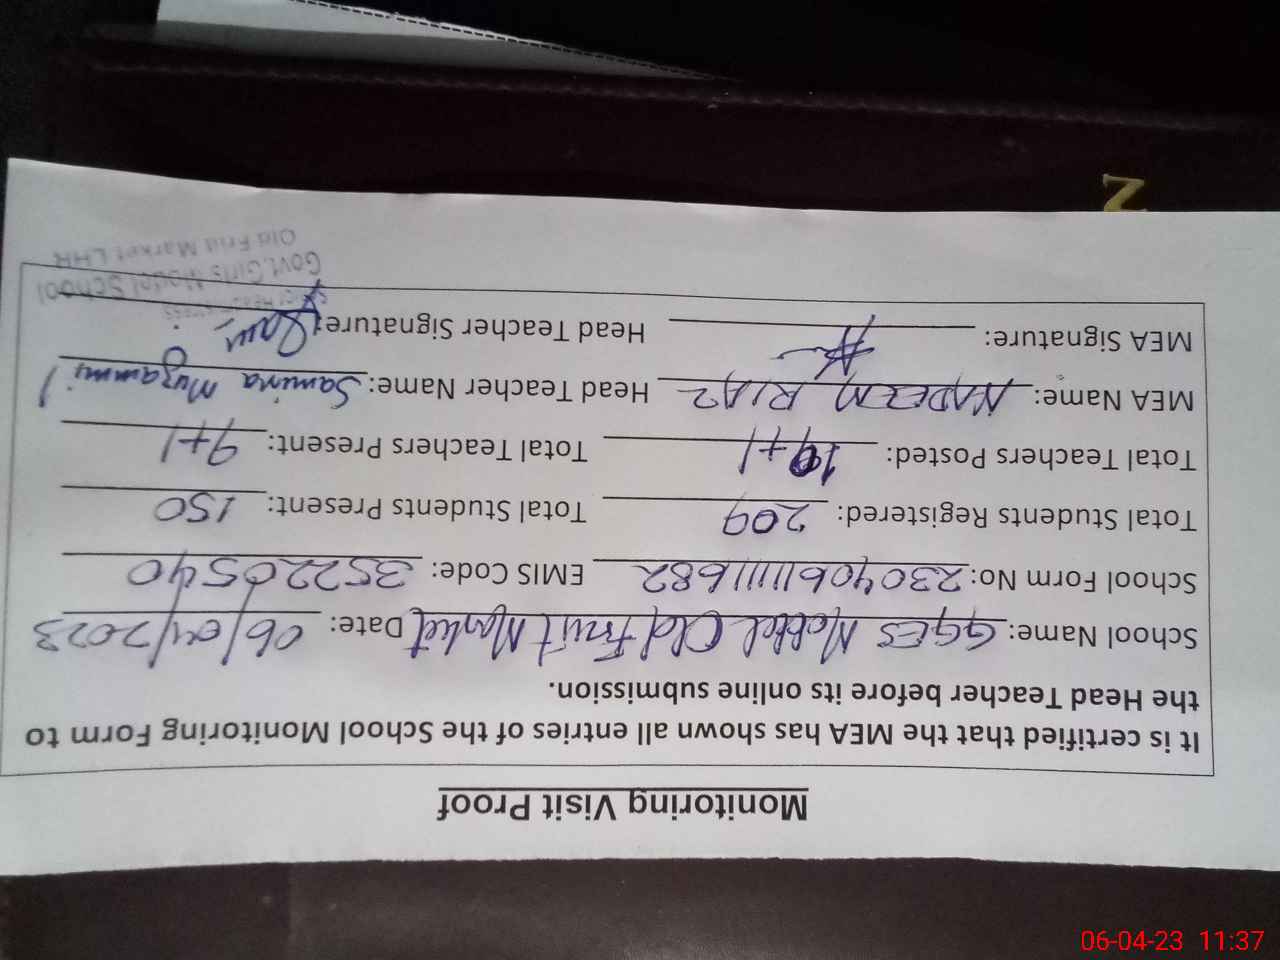 Monitoring Visit Proof
It is certified that the MEA has shown all entries of the School Monitoring Form to
the Head Teacher before its online submission.
School Name: GGES Model Old Fruit Market Date: 06/04/2023
School Form No: 230406111111682 EMIS Code: 35220540
Total Students Registered: 209 Total Students Present: 150
Total Teachers Posted: 19+1 Total Teachers Present: 9+1
MEA Name: NADEEM RIAZ Head Teacher Name: Samina Muzammil
MEA Signature: Head Teacher Signature:
Govt. Girls Model School
Old Fruit Market LHR
Z
06-04-23 11:37